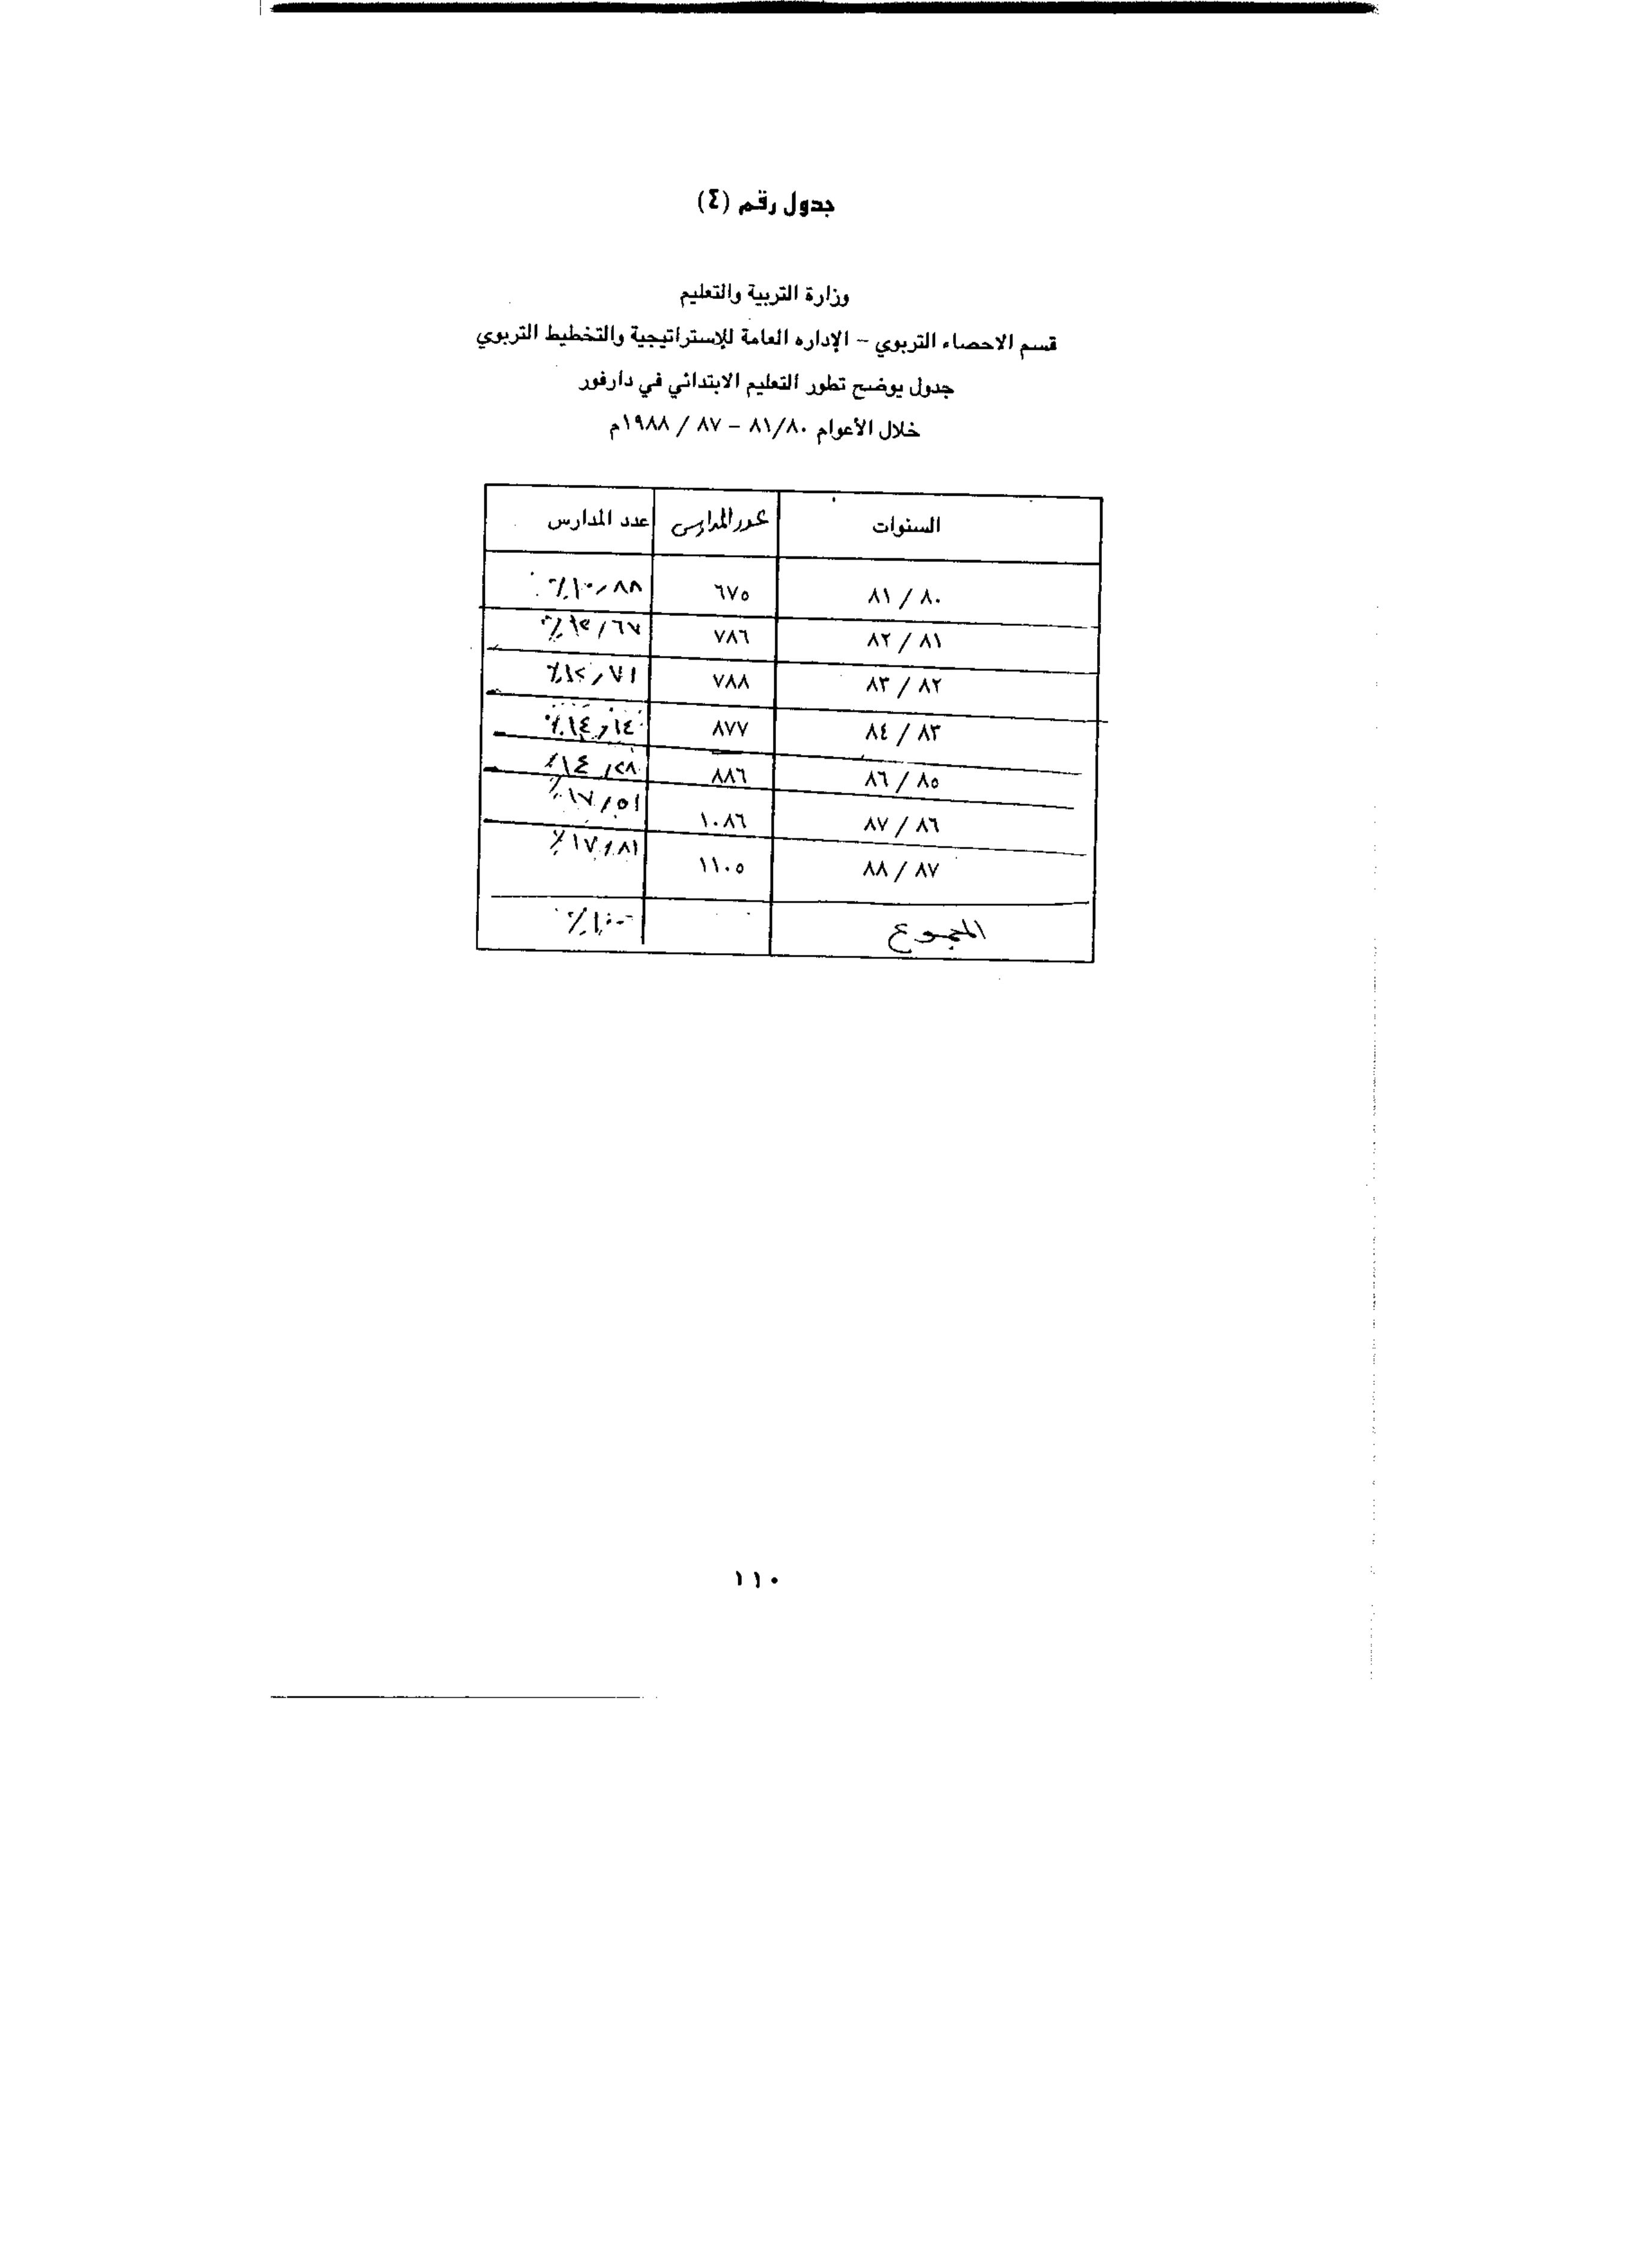 جدول رقم (٤)
وزارة التربية والتعليم
قسم الاحصاء التربوي - الإداره العامة للإستراتيجية والتخطيط التربوي
جدول يوضح تطور التعليم الابتدائي في دارفور
خلال الأعوام ٨١/٨٠ - ٨٧ / ١٩٨٨م
السنوات عدد المدارس عدد المدارس
٨١ / ٨٠ ٦٧٥ ١٠,٨٨٪
٨٢ / ٨١ ٧٨٦ ١٢,٦٧٪
٨٣ / ٨٢ ٧٨٨ ١٢,٧١٪
٨٤ / ٨٣ ٨٧٧ ١٤,١٤٪
٨٦ / ٨٥ ٨٨٦ ١٤,٢٨٪
٨٧ / ٨٦ ١٠٨٦ ١٧,٥١٪
٨٨ / ٨٧ ١١٠٥ ١٧,٨١٪
المجموع ١٠٠٪
١١٠